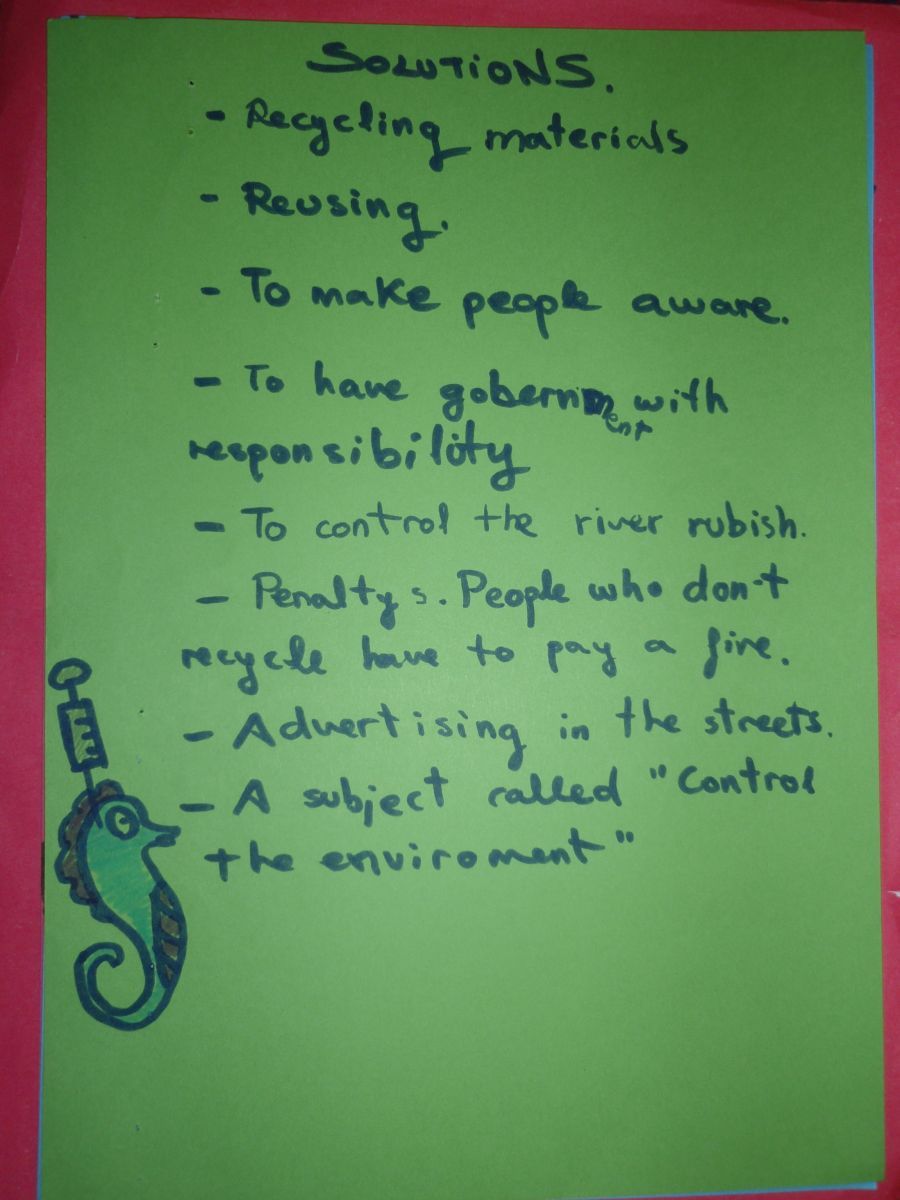 SOLUTIONS.
- Recycling materials
- Reusing.
- To make people aware.
- To have gobernment with
responsibility
- To control the river rubish.
- Penaltys. People who don't
recycle have to pay a fine.
- Advertising in the streets.
- A subject called "Control
the enviroment"